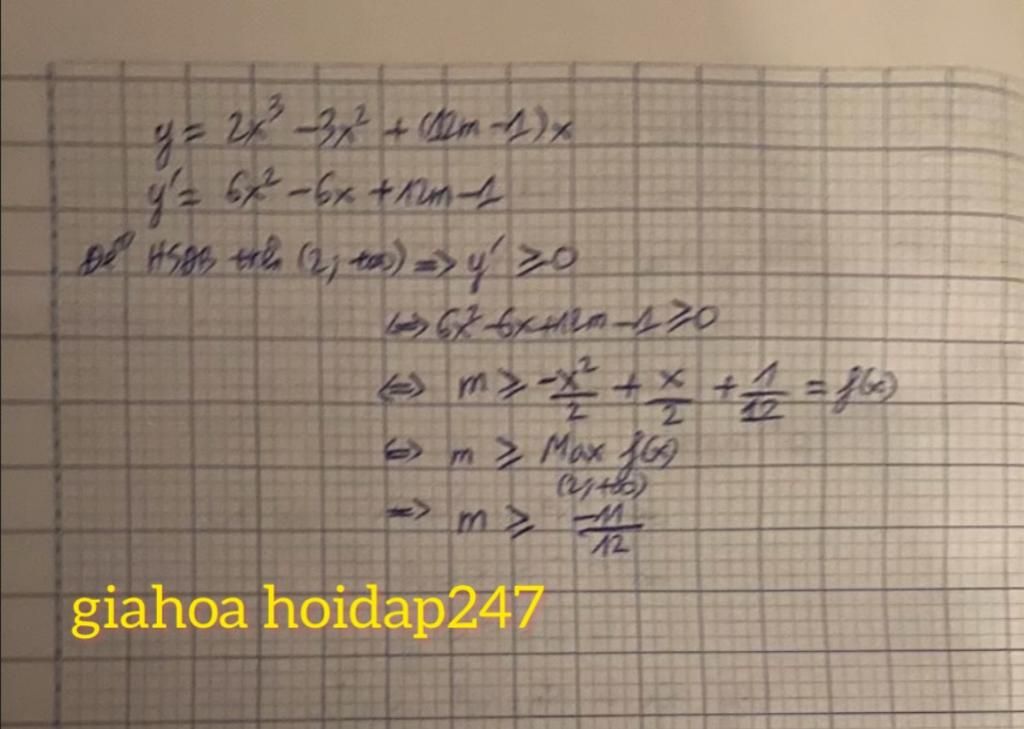 y = 2x³ - 3x² + (12m - 1)x
y' = 6x² - 6x + 12m - 1
Để HSĐB trên (2; +∞) => y' ≥ 0
<=> 6x² - 6x + 12m - 1 ≥ 0
<=> m ≥ -x²/2 + x/2 + 1/12 = f(x)
<=> m ≥ Max f(x)
(2; +∞)
=> m ≥ -11/12
giahoa hoidap247